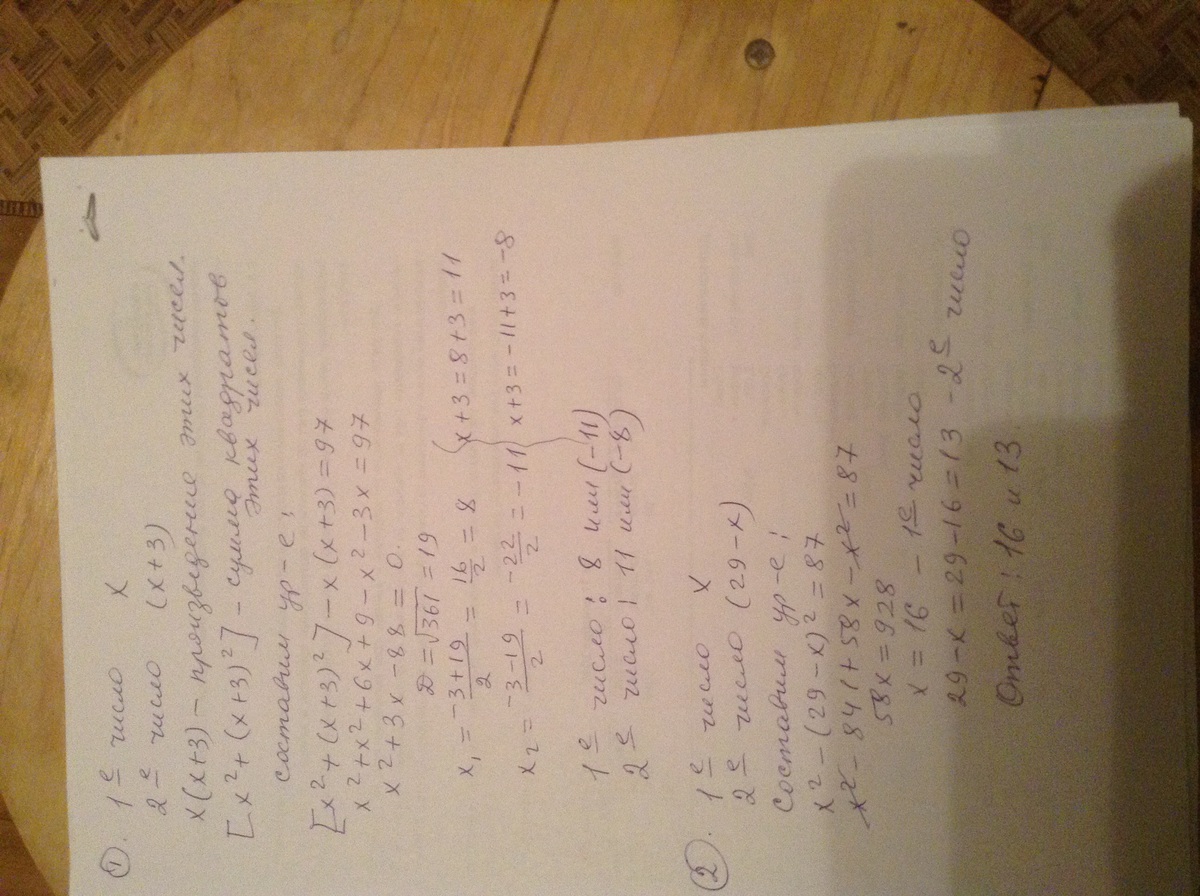 ① 1е число x
2е число (x+3)
x(x+3) – произведение этих чисел.
[x²+(x+3)²] – сумма квадратов
этих чисел.
составим ур-е:
[x²+(x+3)²]–x(x+3)=97
x²+x²+6x+9–x²–3x=97
x²+3x–88=0.
D=√361=19
x₁=(-3+19)/2=16/2=8 x+3=8+3=11
x₂=(-3-19)/2=-22/2=-11 x+3=-11+3=-8
1е число: 8 или (-11)
2е число: 11 или (-8)
②. 1е число x
2е число (29–x)
Составим ур-е:
x²–(29–x)²=87
x²–841+58x–x²=87
58x=928
x=16 – 1е число
29–x=29–16=13 – 2е число
Ответ: 16 и 13.